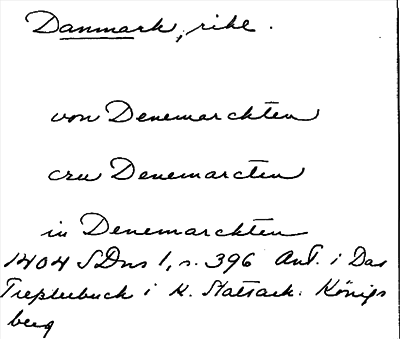 Danmark, rike.
von Denemarckten
czu Denemarcten
in Denemarckten
1404 SDns 1, s. 396 Ant. i Das
Treszlerbuch i K. Statsark. Königs
berg